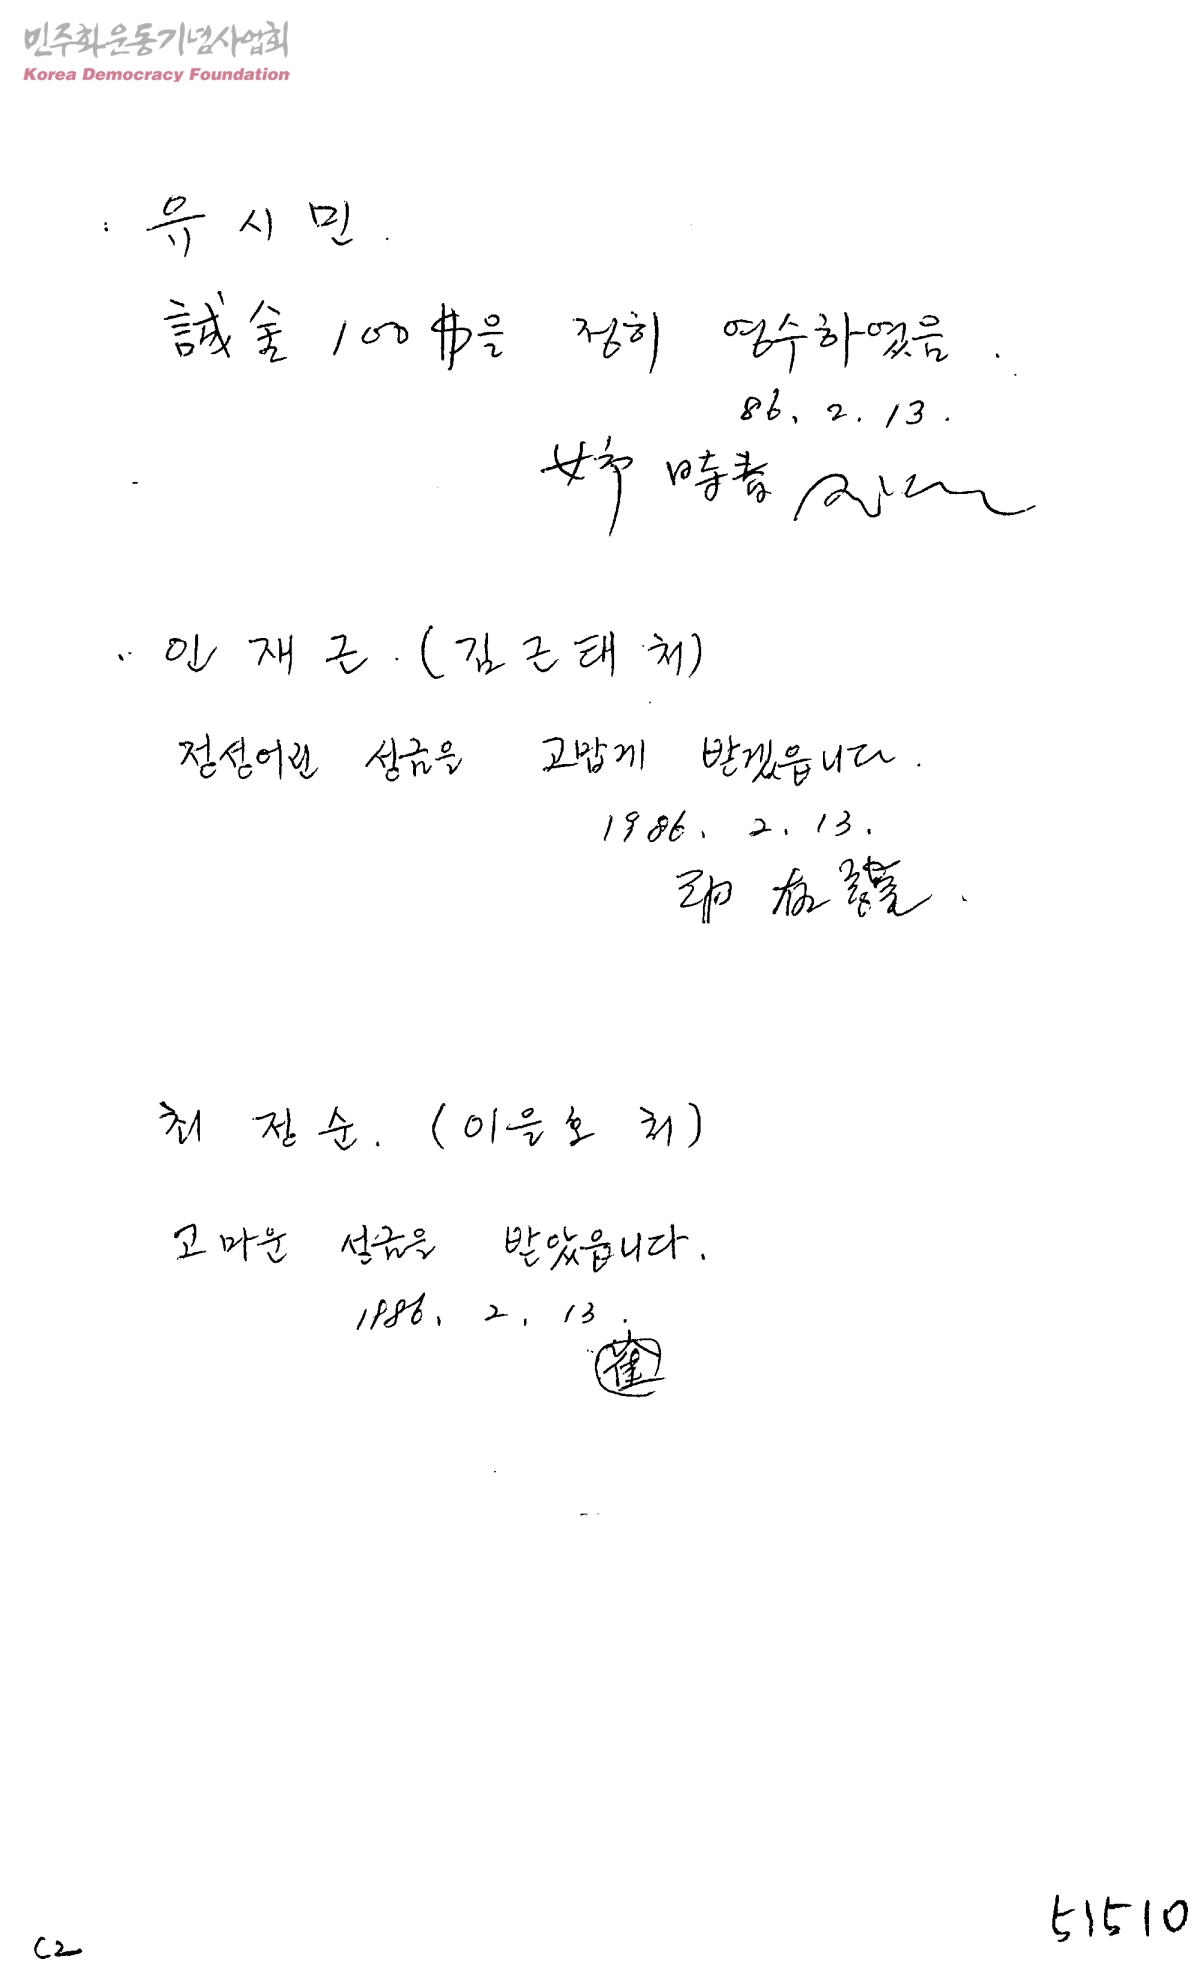 민주화운동기념사업회
Korea Democracy Foundation
유시민.
誠金 100$을 정히 영수하였음.
86. 2. 13.
姉 時春
인재근. (김근태 처)
정성어린 성금을 고맙게 받겠읍니다.
1986. 2. 13.
印在謹.
최정순. (이을호 처)
고마운 성금을 받았읍니다.
1986. 2. 13.
崔
C2
51510